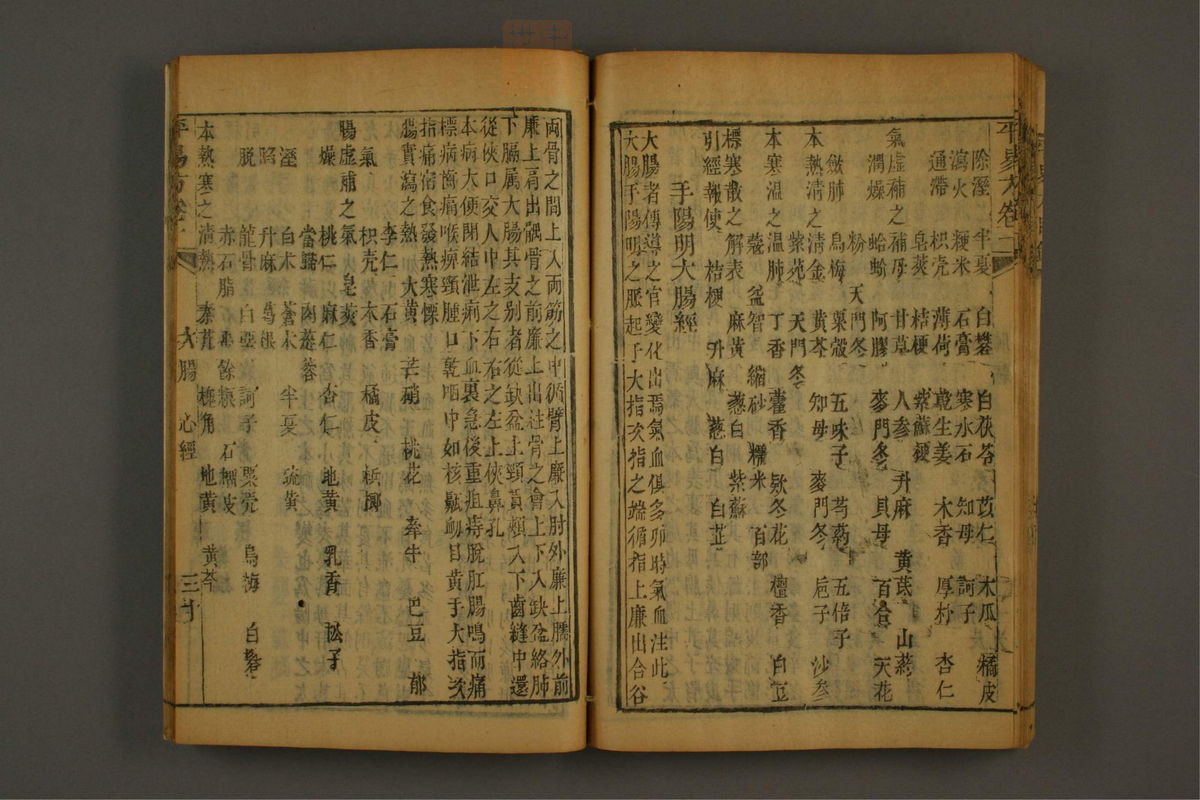 除溼 半夏 白礬 白茯苓 苡仁 木瓜 橘皮
瀉火 粳米 石膏 寒水石 知母 訶子
通滯 枳壳 薄荷 乾生姜 木香 厚朴 杏仁
皂莢 桔梗 紫蘇梗
氣虛補之 補母 甘草 人參 升麻 黃芪 山藥
潤燥 蛤蚧 阿膠 麥門冬 貝母 百合 天花
粉 天門冬
斂肺 烏梅 粟殼 五味子 芍藥 五倍子
本熱清之 清金 黃芩 知母 麥門冬 巵子 沙參
紫菀 天門冬
本寒溫之 溫肺 丁香 藿香 欵冬花 檀香 白荳
蔻 益智 縮砂 糯米 百部
標寒散之 解表 麻黃 葱白 紫蘇
引經報使 桔梗 升麻 葱白 白芷
手陽明大腸經
大腸者傳導之官變化出焉氣血俱多卯時氣血注此
大腸手陽明之脈起于大指次指之端循指上廉出合谷
兩骨之間上入兩筋之中循臂上廉入肘外廉上臑外前
廉上肩出髃骨之前廉上出柱骨之會上下入缺盆絡肺
下膈属大腸其支别者從缺盆上頸貫頰入下齒縫中還
從挾口交人中左之右右之左上挾鼻孔
本病大便閉結泄痢下血裏急後重疽痔脫肛腸鳴而痛
標病齒痛喉痹頸腫口乾咽中如核鼽衂目黃手大指次
指痛宿食發熱寒慄
腸實瀉之 熱 大黃 芒硝 桃花 牽牛 巴豆 郁
李仁 石膏
氣 枳壳 木香 橘皮 梹榔
腸虛補之 氣 皂莢
燥 桃仁 麻仁 杏仁 地黃 乳香 松子
當歸 肉蓯蓉
溼 白朮 蒼朮 半夏 硫黃
陷 升麻 葛根
脫 龍骨 白堊 訶子 粟壳 烏梅 白礬
赤石脂 禹餘糧 石榴皮
本熱寒之 清熱 秦艽 槐角 地黃 黃芩
大腸 心經 三十